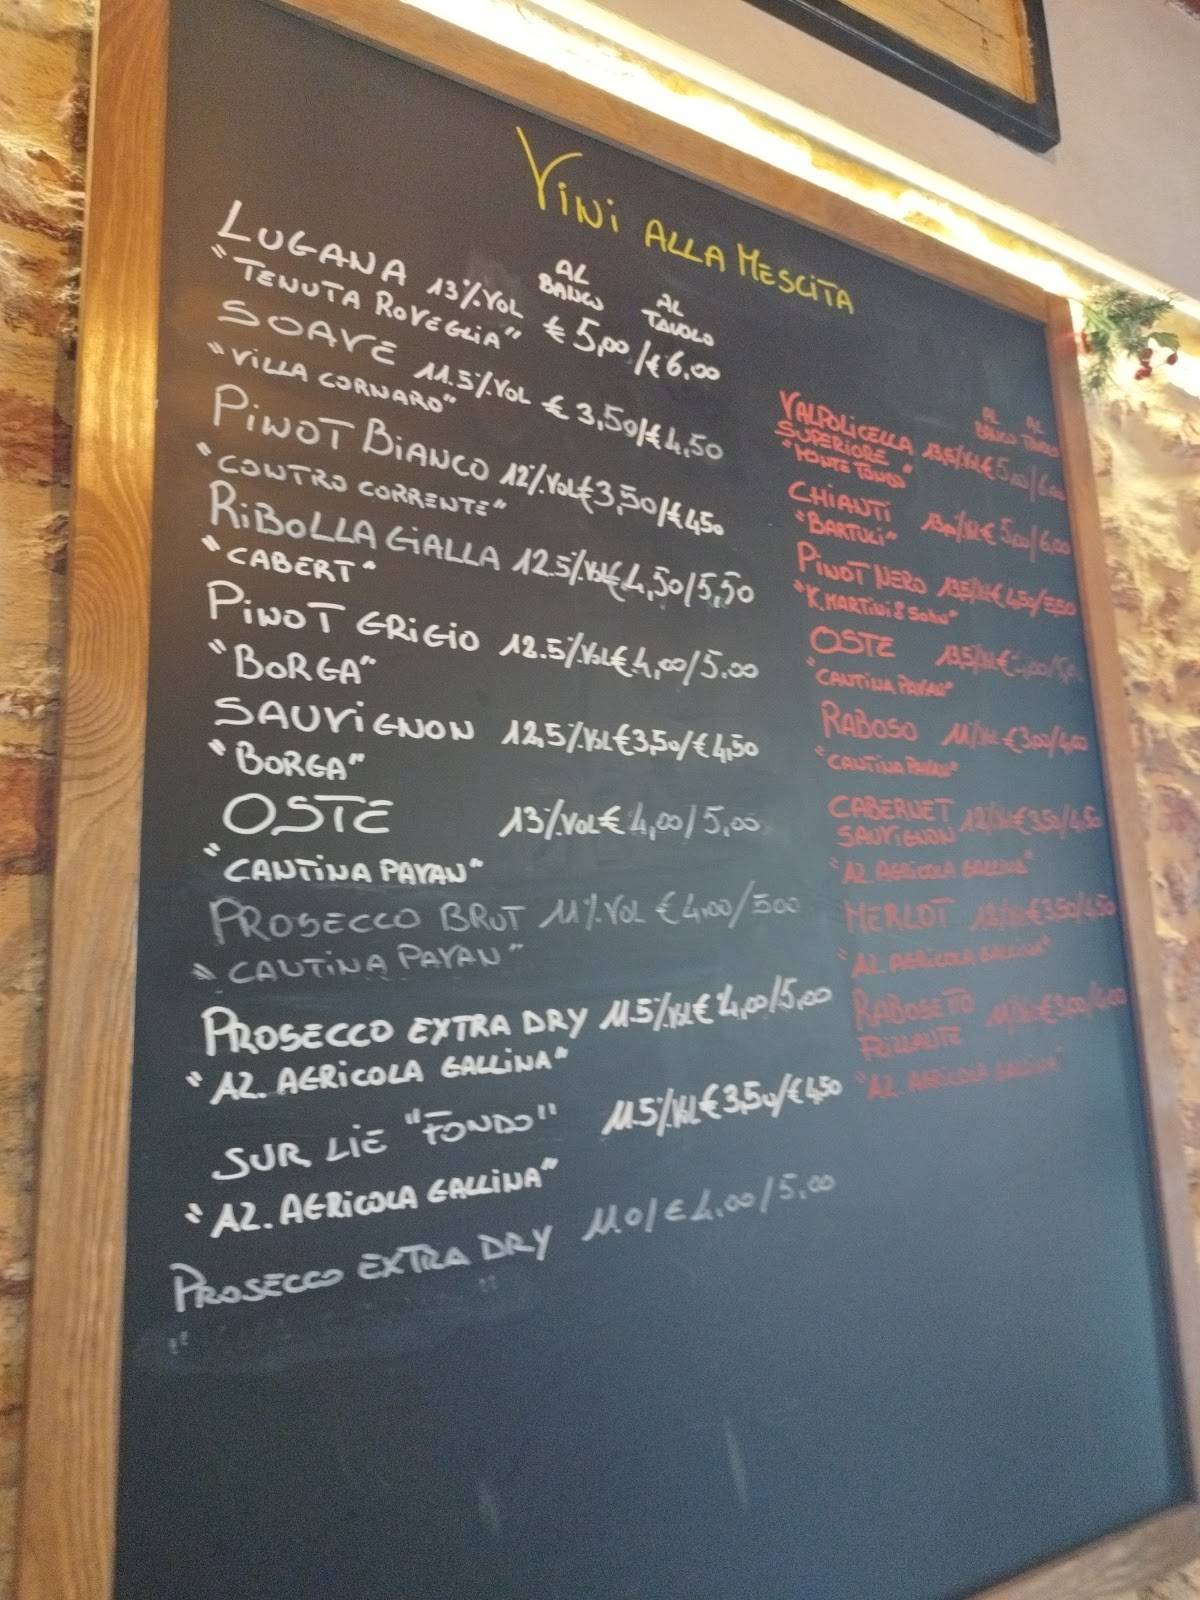 Vini alla Mescita
AL BANCO
AL TAVOLO
LUGANA 13%VOL € 5,00/€6.00
"TENUTA ROVEGLIA"
SOAVE 11.5%VOL € 3,50/€4,50
"VILLA CORNARO"
PINOT BIANCO 12%VOL€3,50/€4,50
"CONTRO CORRENTE"
RIBOLLA GIALLA 12.5%Vol€4,50/5,50
"CABERT"
PINOT GRIGIO 12.5%Vol€4,00/5.00
"BORGA"
SAUVIGNON 12,5%Vol€3,50/€4,50
"BORGA"
OSTE 13%VOL€ 4,00/5,00
"CANTINA PAVAN"
PROSECCO BRUT 11%VOL €4,00/5,00
"CANTINA PAVAN"
PROSECCO EXTRA DRY 11.5%Vol€4,00/5,00
"AZ. AGRICOLA GALLINA"
SUR LIE "FONDO" 11.5%Vol€3,50/€4,50
"AZ. AGRICOLA GALLINA"
PROSECCO EXTRA DRY 11.0/€4.00/5,00
AL BANCO AL TAVOLO
VALPOLICELLA
SUPERIORE 13,5%Vol€5,00/6,00
"MONTE TONDO"
CHIANTI € 5,00/6,00
"BARTULI"
PINOT NERO 13,5%Vol€4,50/5,50
"K.MARTINI & SOHN"
OSTE 13,5%Vol€
"CANTINA PAVAN"
RABOSO 11%Vol €3,00/4,00
"CANTINA PAVAN"
CABERNET
SAUVIGNON 12%Vol€3,50/4,50
"AZ. AGRICOLA GALLINA"
MERLOT 12%Vol€3,50/4,50
"AZ. AGRICOLA GALLINA"
RABOSETTO
FRIZZANTE 11%Vol€3,00/4,00
"AZ. AGRICOLA GALLINA"